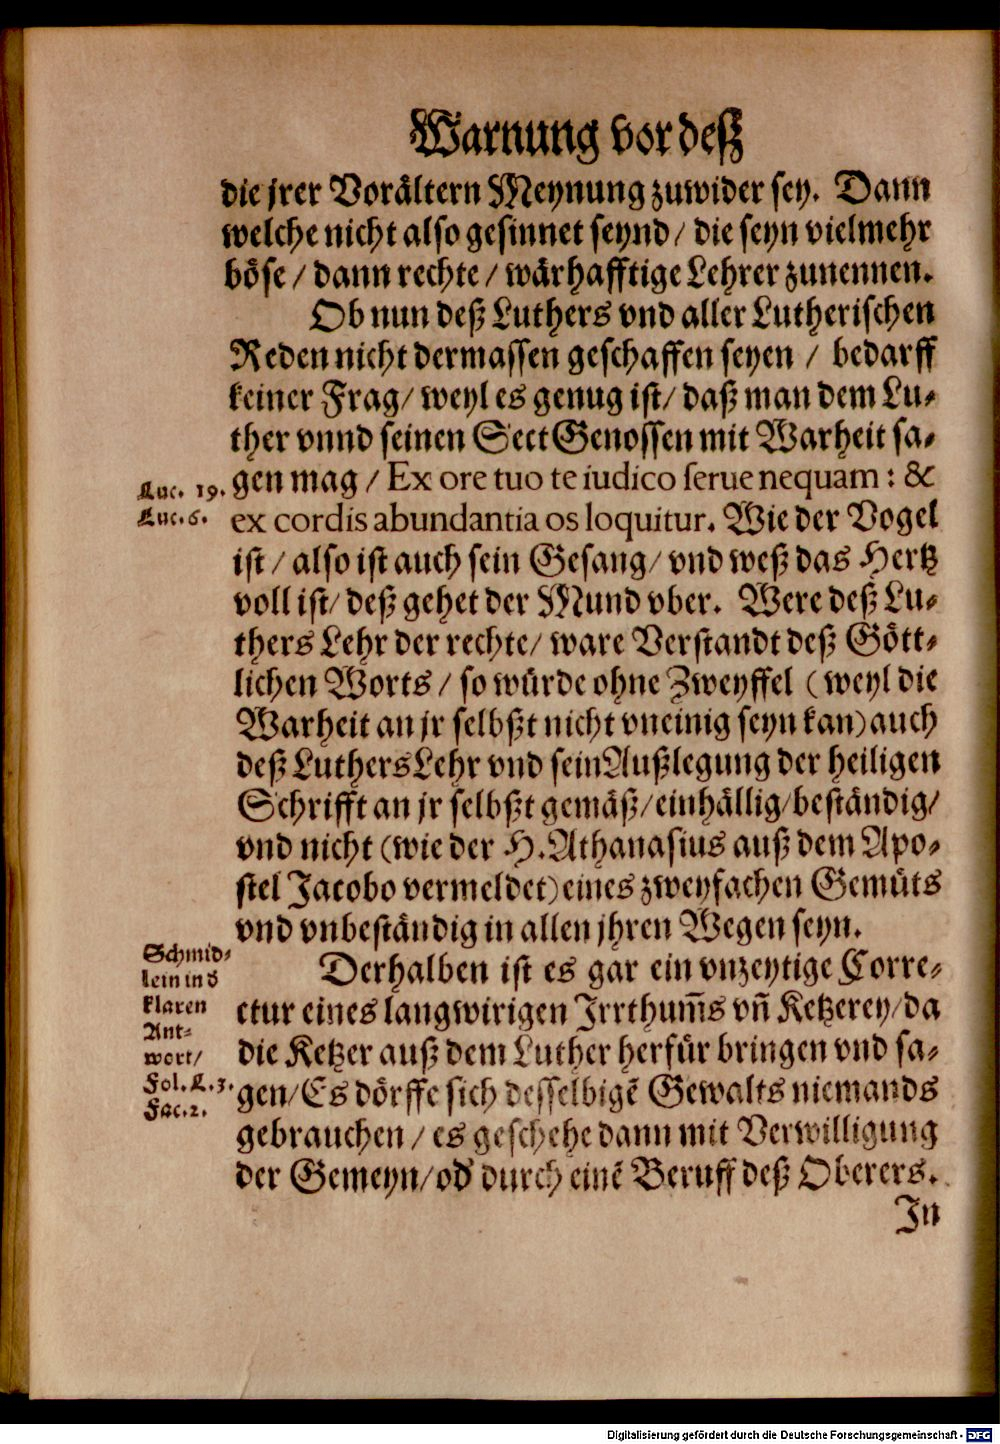 Warnung vor deß
die jrer Vorältern Meynung zuwider sey. Dann
welche nicht also gesinnet seynd/ die seyn vielmehr
böse / dann rechte / wärhafftige Lehrer zunennen.
Ob nun deß Luthers vnd aller Lutherischen
Reden nicht dermassen geschaffen seyen / bedarff
keiner Frag/ weyl es genug ist/ daß man dem Lu-
ther vnnd seinen Sect Genossen mit Warheit sa-
Luc. 19. gen mag / Ex ore tuo te iudico serue nequam : &
Luc. 6. ex cordis abundantia os loquitur. Wie der Vogel
ist / also ist auch sein Gesang/ vnd weß das Hertz
voll ist/ deß gehet der Mund vber. Were deß Lu-
thers Lehr der rechte/ ware Verstandt deß Gött-
lichen Worts / so würde ohne Zweyffel (weyl die
Warheit an jr selbßt nicht vneinig seyn kan) auch
deß Luthers Lehr vnd sein Außlegung der heiligen
Schrifft an jr selbßt gemäß/ einhällig/ beständig/
vnd nicht (wie der H. Athanasius auß dem Apo-
stel Jacobo vermeldet) eines zweyfachen Gemüts
vnd vnbeständig in allen jhren Wegen seyn.
Schmid-
lein in d̕
klaren
Ant-
wort/
Fol. L. 3.
Fac. 2.
Derhalben ist es gar ein vnzeytige Corre-
ctur eines langwirigen Irrthum̃s vñ Ketzerey/ da
die Ketzer auß dem Luther herfür bringen vnd sa-
gen/ Es dörffe sich desselbigẽ Gewalts niemands
gebrauchen / es geschehe dann mit Verwilligung
der Gemeyn/ od̕ durch einẽ Beruff deß Oberers.
In
Digitalisierung gefördert durch die Deutsche Forschungsgemeinschaft - DFG